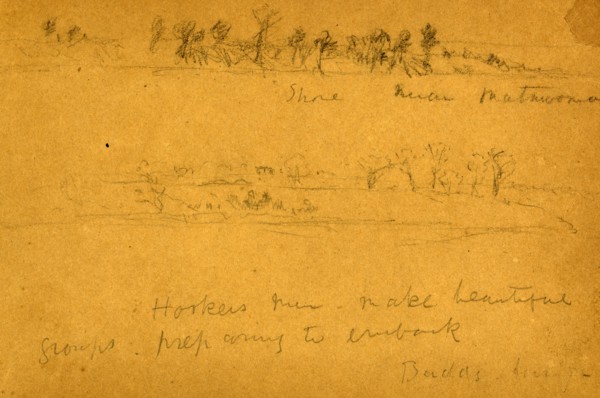 Shore near Matawoma
Hookers men - make beautiful
groups - preparing to embark
Budds